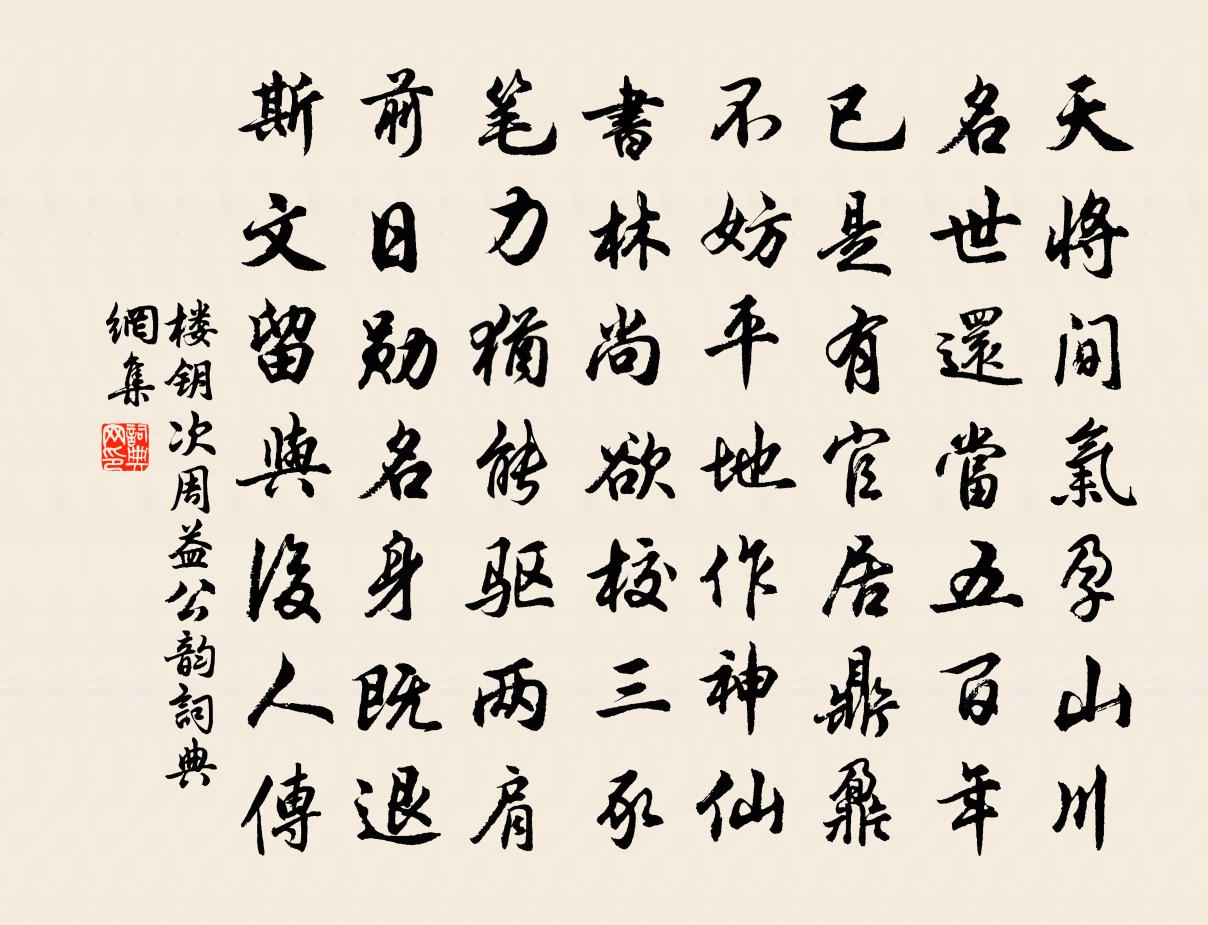 天將間氣孕山川
名世還當五百年
已是有官居鼎鼐
不妨平地作神仙
書林尚欲校三豕
笔力猶能驱两肩
前日勋名身既退
斯文留與後人傳
楼钥次周益公韵詞典
網集
詞典
网印